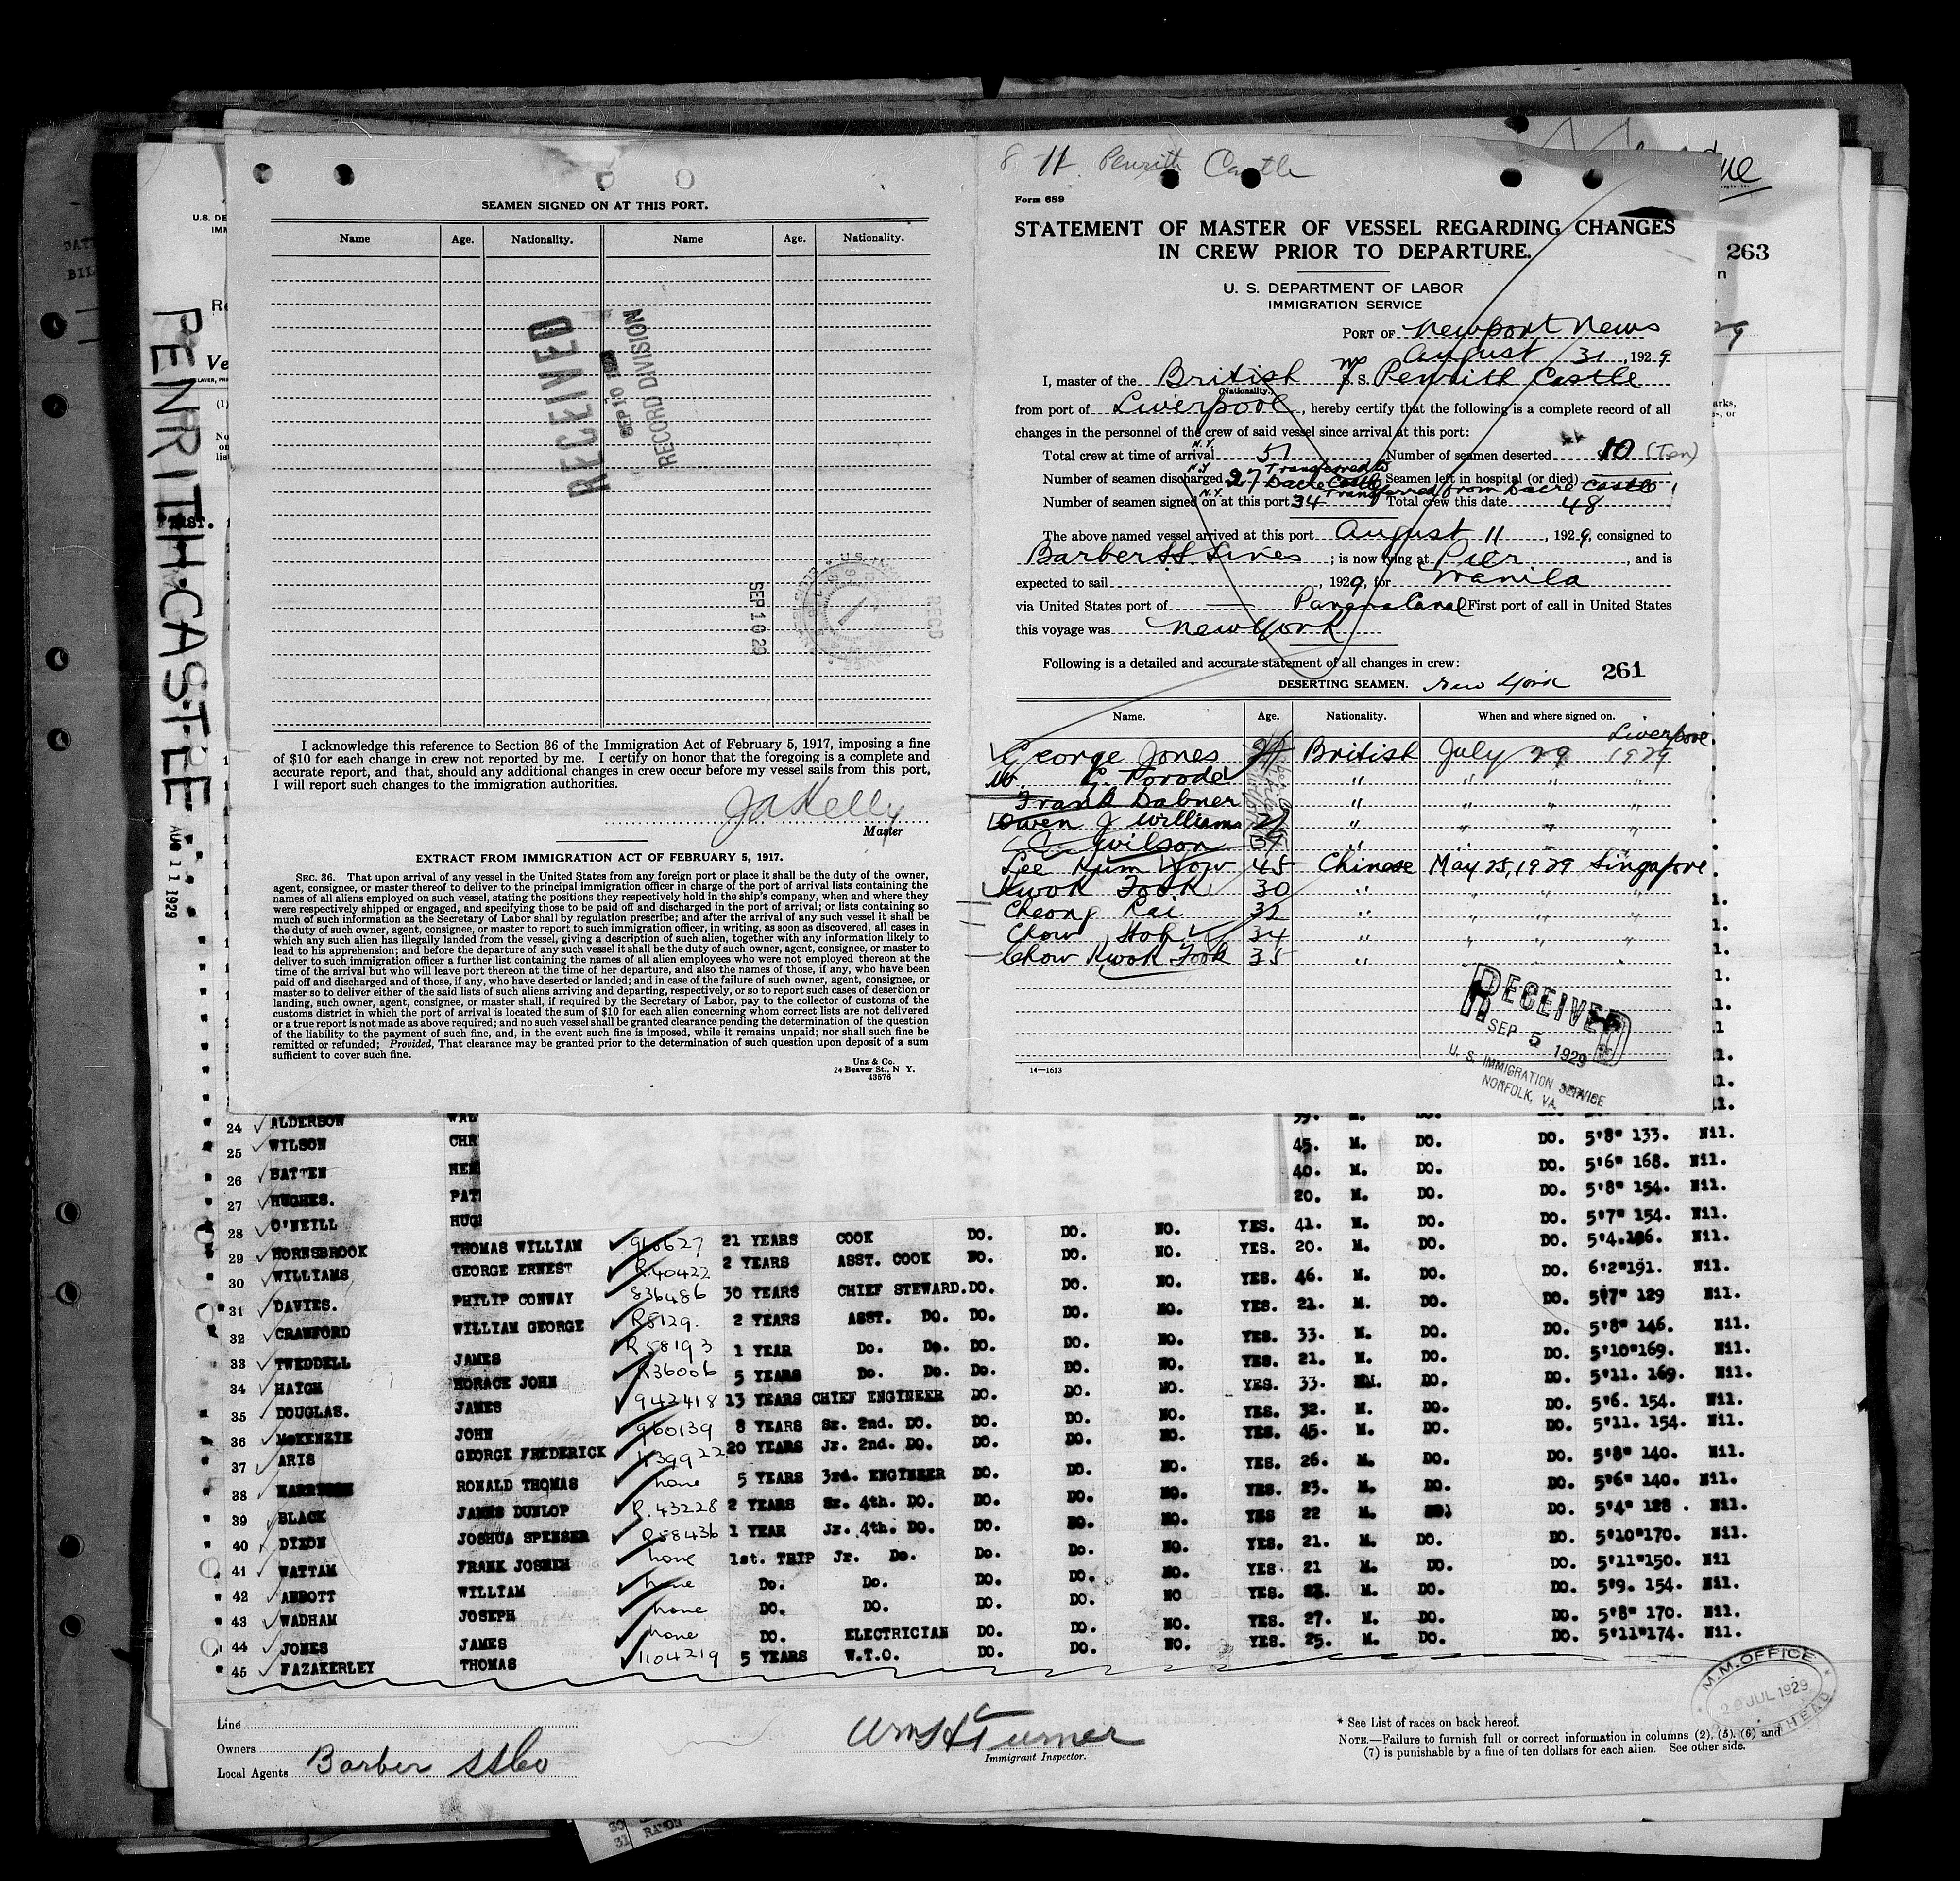 8 11 Penrith Castle
SEAMEN SIGNED ON AT THIS PORT.
Name Age. Nationality. Name Age. Nationality.
RECEIVED
SEP 10
RECORD DIVISION
SEP 10 29
REC'D
I acknowledge this reference to Section 36 of the Immigration Act of February 5, 1917, imposing a fine
of $10 for each change in crew not reported by me. I certify on honor that the foregoing is a complete and
accurate report, and that, should any additional changes in crew occur before my vessel sails from this port,
I will report such changes to the immigration authorities.
JA Kelly
Master
EXTRACT FROM IMMIGRATION ACT OF FEBRUARY 5, 1917.
SEC. 36. That upon arrival of any vessel in the United States from any foreign port or place it shall be the duty of the owner,
agent, consignee, or master thereof to deliver to the principal immigration officer in charge of the port of arrival lists containing the
names of all aliens employed on such vessel, stating the positions they respectively hold in the ship's company, when and where they
were respectively shipped or engaged, and specifying those to be paid off and discharged in the port of arrival; or lists containing so
much of such information as the Secretary of Labor shall by regulation prescribe; and after the arrival of any such vessel it shall be
the duty of such owner, agent, consignee, or master to report to such immigration officer, in writing, as soon as discovered, all cases in
which any such alien has illegally landed from the vessel, giving a description of such alien, together with any information likely to
lead to his apprehension; and before the departure of any such vessel it shall be the duty of such owner, agent, consignee, or master to
deliver to such immigration officer a further list containing the names of all alien employees who were not employed thereon at the
time of the arrival but who will leave port thereon at the time of her departure, and also the names of those, if any, who have been
paid off and discharged and of those, if any, who have deserted or landed; and in case of the failure of such owner, agent, consignee, or
master so to deliver either of the said lists of such aliens arriving and departing, respectively, or so to report such cases of desertion or
landing, such owner, agent, consignee, or master shall, if required by the Secretary of Labor, pay to the collector of customs of the
customs district in which the port of arrival is located the sum of $10 for each alien concerning whom correct lists are not delivered
or a true report is not made as above required; and no such vessel shall be granted clearance pending the determination of the question
of the liability to the payment of such fine, and, in the event such fine is imposed, while it remains unpaid; nor shall such fine be
remitted or refunded; Provided, That clearance may be granted prior to the determination of such question upon deposit of a sum
sufficient to cover such fine.
Unz & Co.
24 Beaver St., N Y.
43576
Form 689
STATEMENT OF MASTER OF VESSEL REGARDING CHANGES
IN CREW PRIOR TO DEPARTURE.
U. S. DEPARTMENT OF LABOR
IMMIGRATION SERVICE
PORT OF Newport News
August 31, 1929
I, master of the British M S. S. Penrith Castle
(Nationality.)
from port of Liverpool, hereby certify that the following is a complete record of all
changes in the personnel of the crew of said vessel since arrival at this port:
Total crew at time of arrival N.Y. 51 Number of seamen deserted 10 (Ten)
Number of seamen discharged N.Y 27 Transferred to Dacre Castle Seamen left in hospital (or died)
Number of seamen signed on at this port N.Y. 34 Transferred from Dacre Castle Total crew this date 48
The above named vessel arrived at this port August 11, 1929, consigned to
Barber S.S. Lines; is now lying at Pier, and is
expected to sail , 1929, for Manila
via United States port of — Panama Canal First port of call in United States
this voyage was New York
Following is a detailed and accurate statement of all changes in crew:
261
DESERTING SEAMEN. New York
Name. Age. Nationality. When and where signed on.
George Jones British July 29 1929 Liverpool
Frank Dabner " " " "
Owen J Williams 21 " " " "
Wilson " " " "
Lee Kum 45 Chinese May 25, 1929 Singapore
Kwok Fook 30 " " " "
Cheong Kai 32 " " " "
Chow Hoh 34 " " " "
Chow Kwok Fook 35 "
RECEIVED
SEP 5 1929
U. S. IMMIGRATION SERVICE
NORFOLK, VA.
14—1613
263
PENRITH CASTLE
AUG 11 1929
24 ALDERSON WAL 39. M. DO.
25 WILSON CHR 45. M. DO. DO. 5'8" 133. Nil.
26 BATTEN HEN 40. M. DO. DO. 5'6" 168. Nil.
27 HUGHES. PAT 20. M. DO. DO. 5'8" 154. Nil.
28 O'NEILL HUG YES. 41. M. DO. DO. 5'7" 154. Nil.
29 HORNSBROOK THOMAS WILLIAM 960627 21 YEARS COOK DO. DO. NO. YES. 20. M. DO. DO. 5'4. Nil.
30 WILLIAMS GEORGE ERNEST R.40422 2 YEARS ASST. COOK DO. DO. NO. YES. 46. M. DO. DO. 6'2"191. Nil.
31 DAVIES. PHILIP CONWAY 836486 30 YEARS CHIEF STEWARD. DO. DO. NO. YES. 21. M. DO. DO. 5'7" 129 Nil.
32 CRAWFORD WILLIAM GEORGE R8129. 2 YEARS ASST. DO. DO. DO. NO. YES. 33. M. DO. DO. 5'8" 146. Nil.
33 TWEDDELL JAMES R58193 1 YEAR Do. Do. Do. DO. NO. YES. 21. M. DO. DO. 5'10"169. Nil.
34 HAIGH HORACE JOHN R36006 5 YEARS Do. Do. Do. DO. NO. YES. 33. M. DO. DO. 5'11. 169. Nil.
35 DOUGLAS. JAMES 942418 13 YEARS CHIEF ENGINEER DO. DO. NO. YES. 32. M. DO. DO. 5'6. 154. Nil.
36 McKENZIE JOHN 960139 8 YEARS Sr. 2nd. DO. DO. DO. NO. YES. 45. M. DO. DO. 5'11. 154. Nil.
37 ARIS GEORGE FREDERICK 1139922 20 YEARS Jr. 2nd. DO. DO. DO. NO. YES. 26. M. DO. DO. 5'8" 140. Nil.
38 RONALD THOMAS none 5 YEARS 3rd. ENGINEER DO. DO. NO. YES. 23. M. DO. DO. 5'6" 140. Nil.
39 BLACK JAMES DUNLOP R.43228 2 YEARS Sr. 4th. DO. DO. DO. NO. YES 22 M. DO. 5'4" 128. Nil.
40 DIXON JOSHUA SPENSER R58436 1 YEAR Jr. 4th. DO. DO. DO. NO. YES. 21. M. DO. DO. 5'10"170. Nil.
41 WATTAM FRANK JOSHEM none 1st. TRIP Jr. Do. Do. Do. NO. YES. 21 M. DO. DO. 5'11"150. Nil
42 ABBOTT WILLIAM none Do. Do. DO. DO. NO YES. M. DO. DO. 5'9. 154. Nil.
43 WADHAM JOSEPH none DO. DO. DO. DO. NO. YES. 27. M. DO. DO. 5'8" 170. Nil.
44 JONES JAMES none DO. ELECTRICIAN DO. DO. NO. YES. 25. M. DO. DO. 5'11"174. Nil.
45 FAZAKERLEY THOMAS 1104219 5 YEARS W.T.O. DO.
M.M. OFFICE
JUL 1929
Line
Owners
Local Agents Barber SS Co
Wm H Turner
Immigrant Inspector.
* See List of races on back hereof.
NOTE.—Failure to furnish full or correct information in columns (2), (5), (6) and
(7) is punishable by a fine of ten dollars for each alien. See other side.